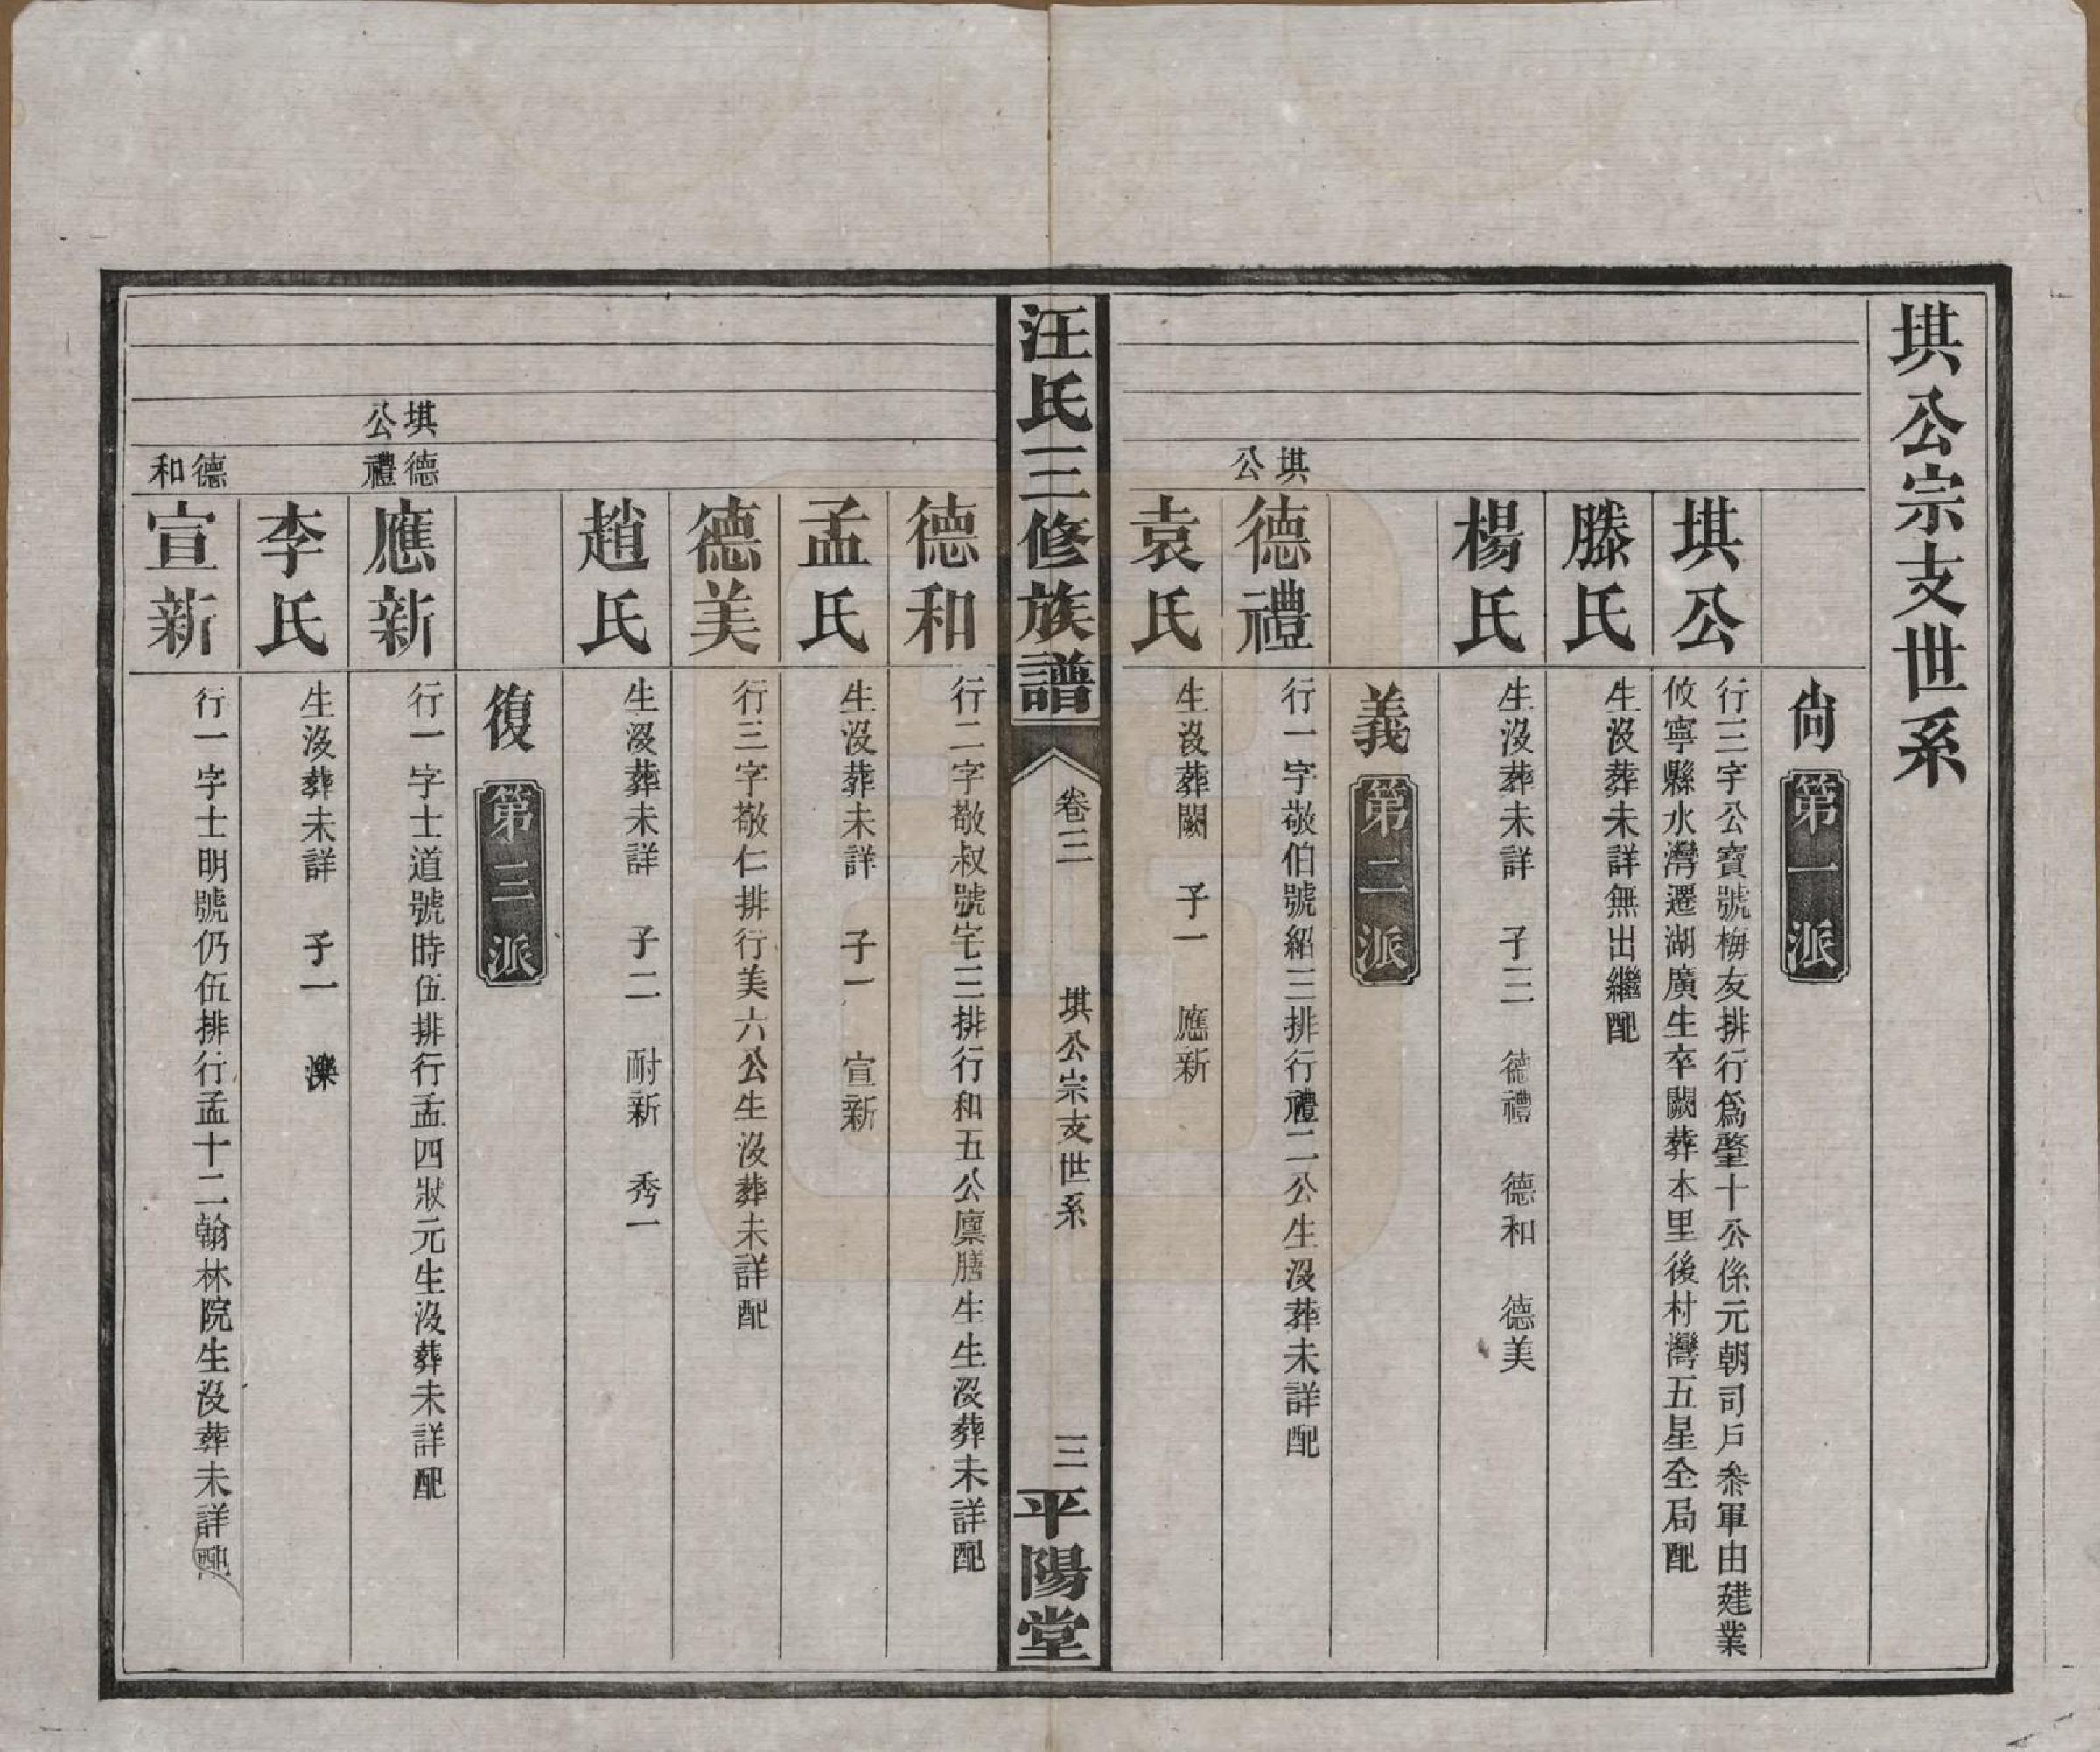 塂公宗支世系
尙 第一派
塂公 行三字公寶號梅友排行爲肇十公係元朝司戶叅軍由建業
攸寧縣水灣遷湖廣生卒闕葬本里後村灣五星全局配
滕氏 生沒葬未詳無出繼配
楊氏 生沒葬未詳 子三 德禮 德和 德美
義 第二派
塂公
德禮 行一字敬伯號紹三排行禮二公生沒葬未詳配
袁氏 生沒葬闕 子一 應新
汪氏三修族譜 卷三 塂公宗支世系 三 平陽堂
德和 行二字敬叔號宅三排行和五公廩膳生生沒葬未詳配
孟氏 生沒葬未詳 子一 宣新
德美 行三字敬仁排行美六公生沒葬未詳配
趙氏 生沒葬未詳 子二 耐新 秀一
復 第三派
塂公
德禮
應新 行一字士道號時伍排行孟四狀元生沒葬未詳配
李氏 生沒葬未詳 子一 濼
德和
宣新 行一字士明號仍伍排行孟十二翰林院生沒葬未詳配